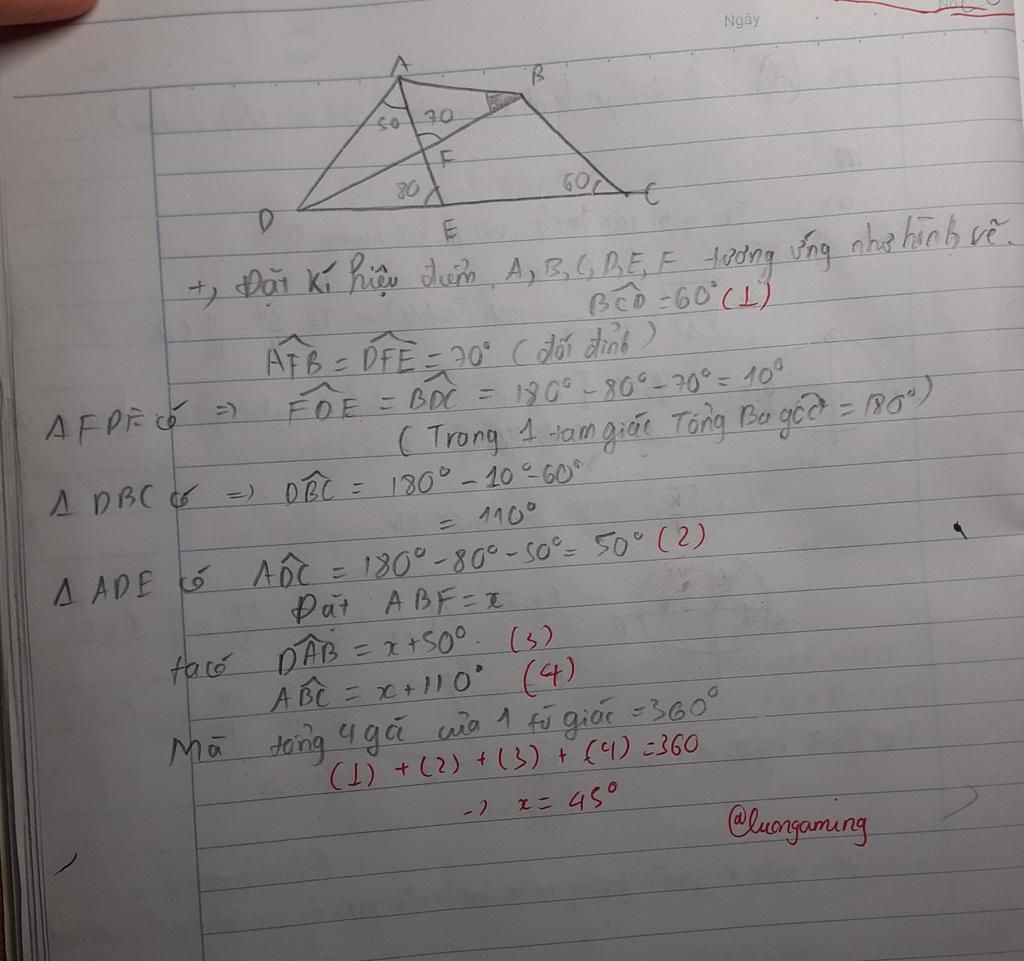 Ngày
A
B
50
70
F
80
60
D
E
C
+, Đặt kí hiệu điểm A, B, C, D, E, F tương ứng như hình vẽ.
BĈD = 60° (1)
AF̂B = DF̂E = 70° (đối đỉnh)
Δ FDE có => FD̂E = BD̂C = 180° - 80° - 70° = 10°
(Trong 1 tam giác Tổng Ba góc = 180°)
Δ DBC có => DB̂C = 180° - 10° - 60°
= 110°
Δ ADE có AD̂C = 180° - 80° - 50° = 50° (2)
Đặt ABF = x
ta có DÂB = x + 50°. (3)
AB̂C = x + 110° (4)
Mà tổng 4 gó của 1 tứ giác = 360°
(1) + (2) + (3) + (4) = 360
-> x = 45°
@luongaming